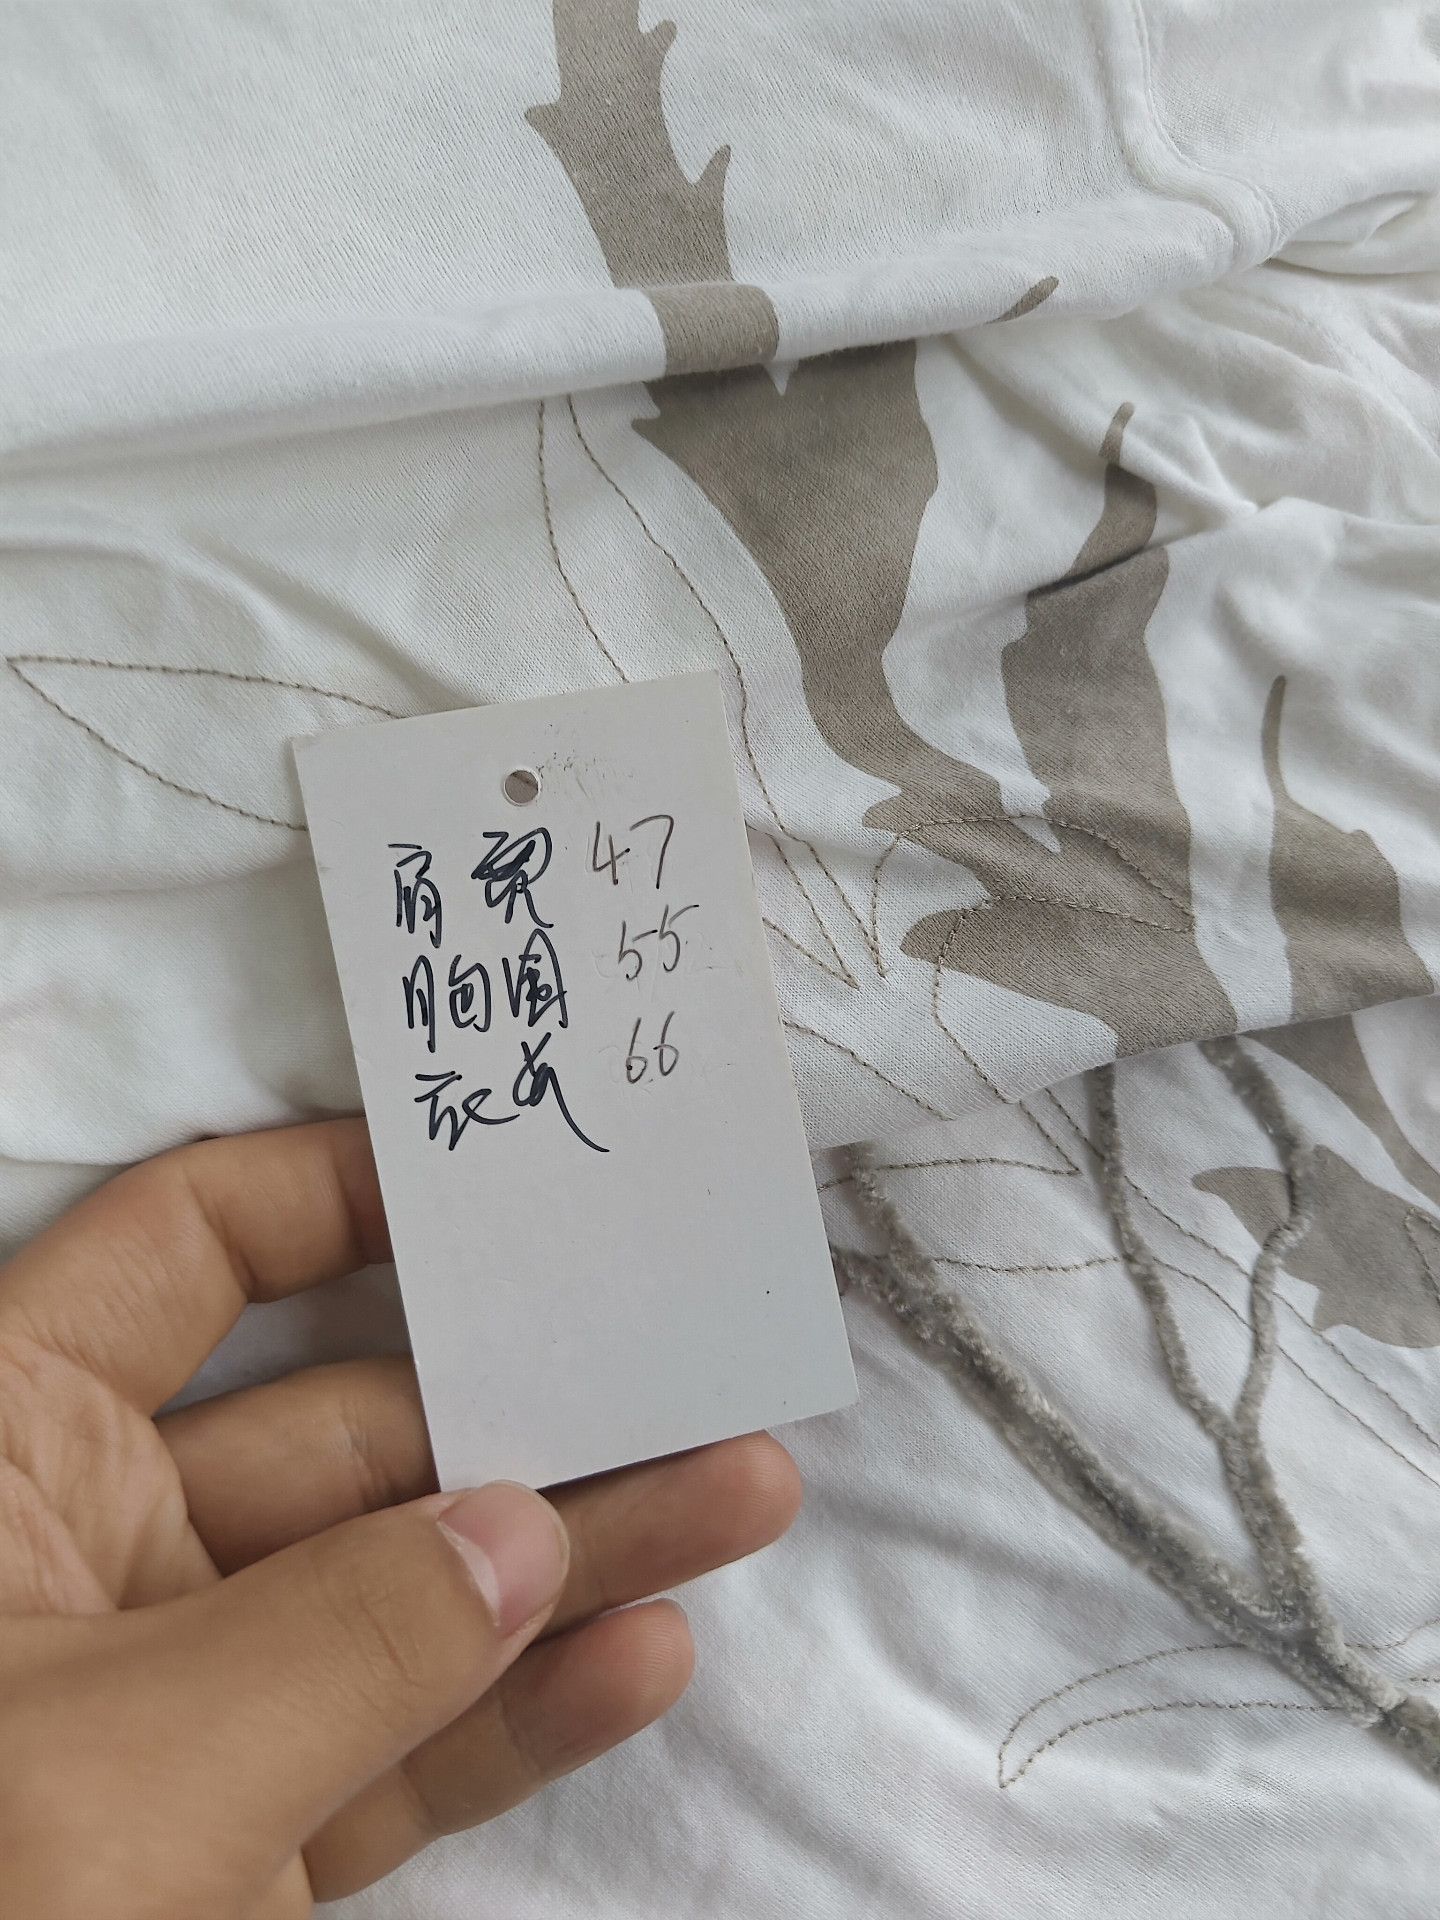 肩宽 47
胸围 55
衣长 66